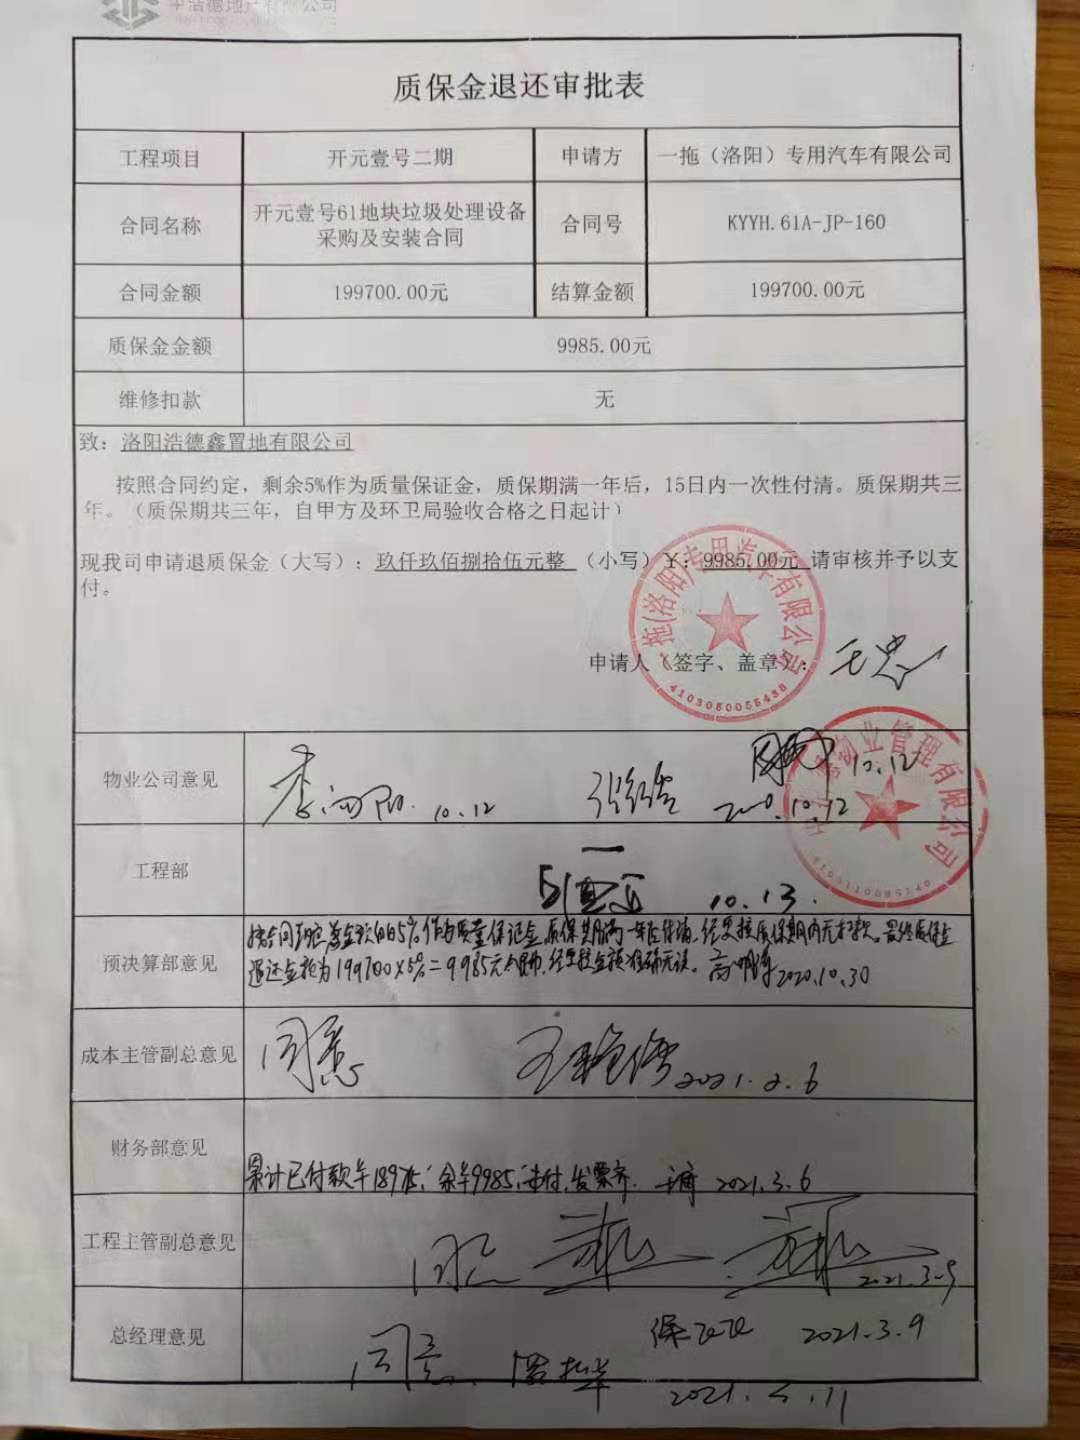 中浩德地产有限公司
质保金退还审批表
工程项目 开元壹号二期 申请方 一拖（洛阳）专用汽车有限公司
合同名称 开元壹号61地块垃圾处理设备采购及安装合同 合同号 KYYH.61A-JP-160
合同金额 199700.00元 结算金额 199700.00元
质保金金额 9985.00元
维修扣款 无
致：洛阳浩德鑫置地有限公司
按照合同约定，剩余5%作为质量保证金，质保期满一年后，15日内一次性付清。质保期共三
年。（质保期共三年，自甲方及环卫局验收合格之日起计）
现我司申请退质保金（大写）：玖仟玖佰捌拾伍元整 （小写）¥：9985.00元 请审核并予以支
付。
一拖(洛阳)专用汽车有限公司
4103050055438
申请人（签字、盖章）：
物业管理有限公司
物业公司意见 10.12 2020.10.12 10.12
工程部 10.13.
预决算部意见
按合同约定总金额的5%作为质量保证金,质保期满一年后付清,经复核质保期内无扣款。最终质保金
退还金额为199700×5%=9985元人民币,经复核金额准确无误。 2020.10.30
成本主管副总意见 同意 2021.2.6
财务部意见
累计已付款￥189715;余￥9985;未付,发票齐. 2021.3.6
工程主管副总意见 同意 2021.3.9
总经理意见 2021.3.9
同意 2021.3.11